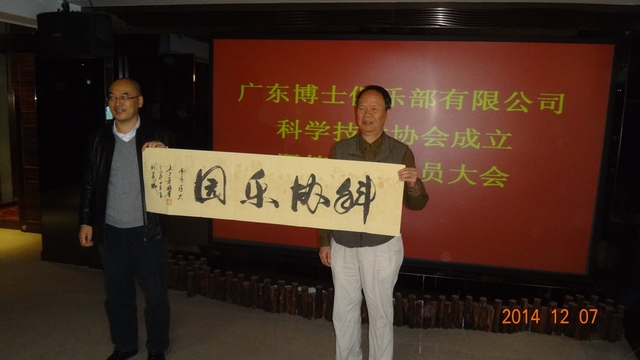 广东博士俱乐部有限公司
科学技 协会成立
员大会
科协乐园
2014 12 07